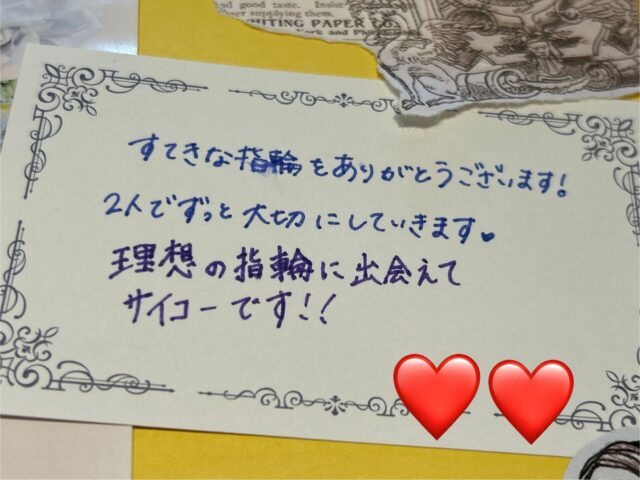 ad good taste. Insist
supplying them.
WHITING PAPER CO.
York and Phil
すてきな指輪をありがとうございます!
2人でずっと大切にしていきます♥
理想の指輪に出会えて
サイコーです!!